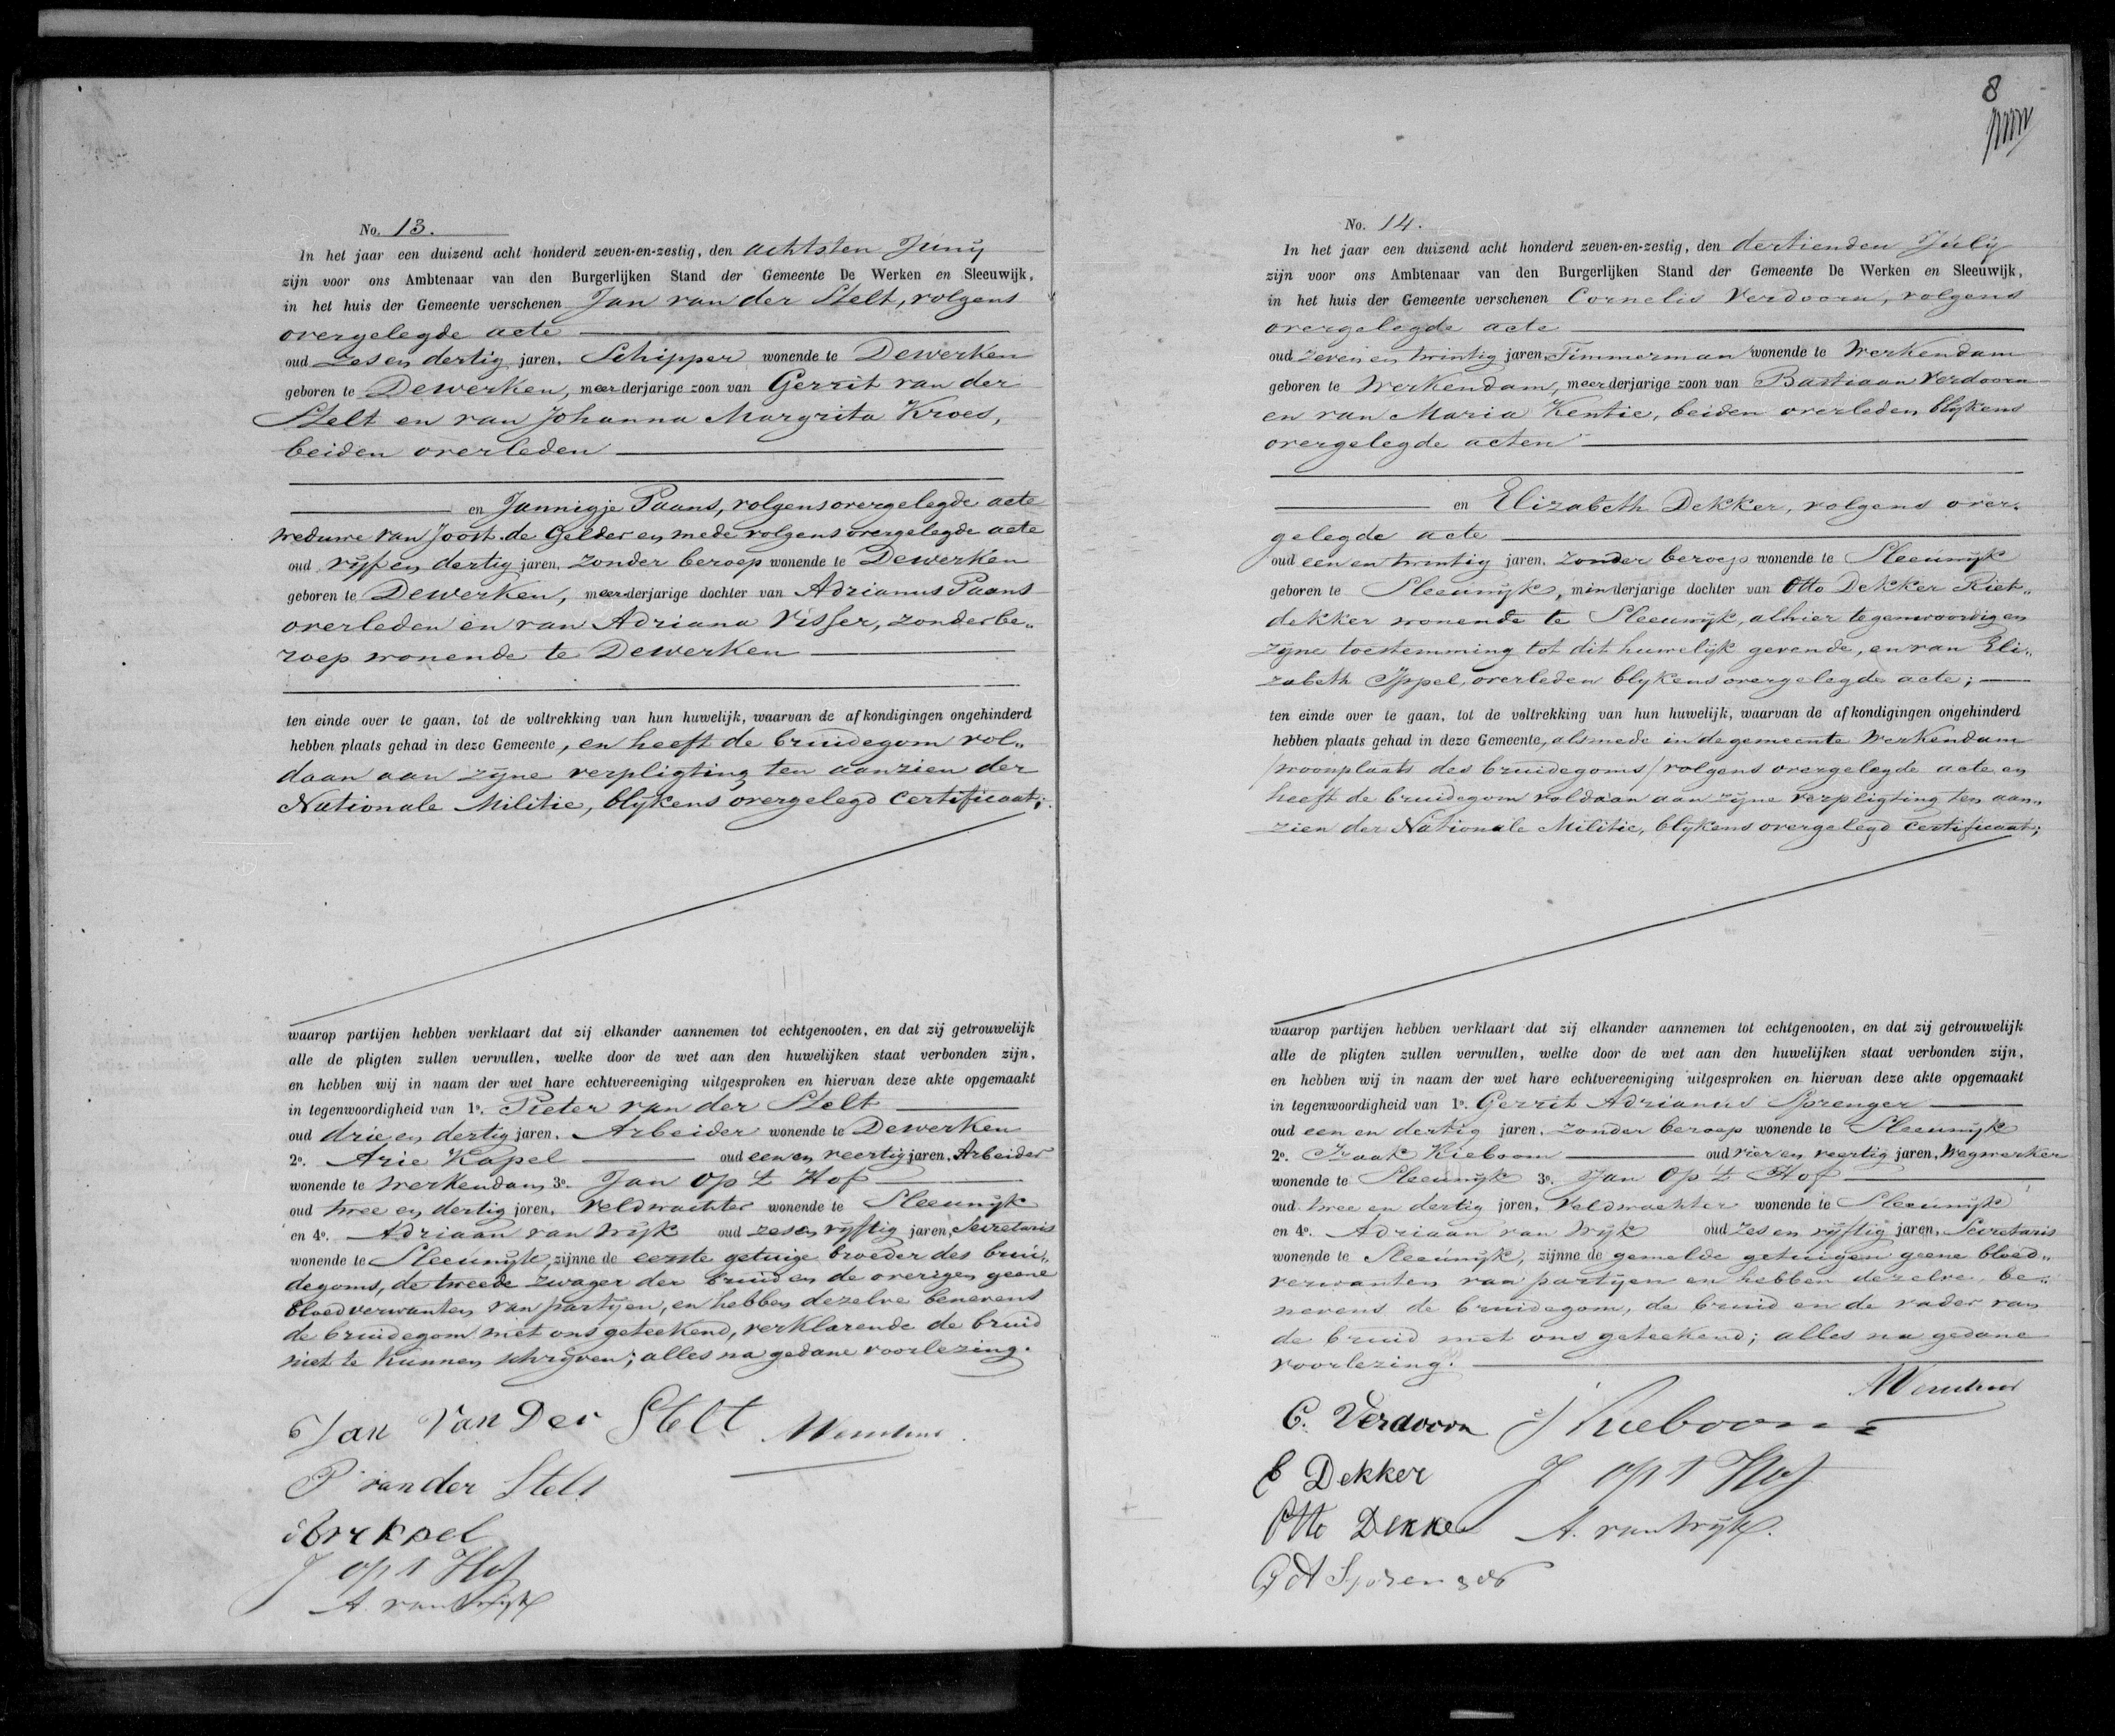 No. 13.
In het jaar een duizend acht honderd zeven-en-zestig, den achtsten Junij
zijn voor ons Ambtenaar van den Burgerlijken Stand der Gemeente De Werken en Sleeuwijk,
in het huis der Gemeente verschenen Jan van der Stelt, volgens
overgelegde acte
oud zes en dertig jaren, Schipper wonende te Dewerken
geboren te Dewerken, meerderjarige zoon van Gerrit van der
Stelt en van Johanna Margrita Kroes,
beiden overleden
en Jannigje Paans, volgens overgelegde acte
weduwe van Joost de Gelder en mede volgens overgelegde acte
oud vijf en dertig jaren, zonder beroep wonende te Dewerken
geboren te Dewerken, meerderjarige dochter van Adrianus Paans
overleden en van Adriana Visser, zonder be„
roep wonende te Dewerken
ten einde over te gaan, tot de voltrekking van hun huwelijk, waarvan de afkondigingen ongehinderd
hebben plaats gehad in deze Gemeente, en heeft de bruidegom vol„
daan aan zijne verpligting ten aanzien der
Nationale Militie, blijkens overgelegd certificaat;
waarop partijen hebben verklaart dat zij elkander aannemen tot echtgenooten, en dat zij getrouwelijk
alle de pligten zullen vervullen, welke door de wet aan den huwelijken staat verbonden zijn,
en hebben wij in naam der wet hare echtvereeniging uitgesproken en hiervan deze akte opgemaakt
in tegenwoordigheid van 1o. Pieter van der Stelt
oud drie en dertig jaren, Arbeider wonende te Dewerken
2o. Arie Kapel oud een en veertig jaren, Arbeider
wonende te Werkendam 3o. Jan Op 't Hof
oud twee en dertig joren, Veldwachter wonende te Sleeuwijk
en 4o. Adriaan van Wijk oud zes en vijftig jaren, Secretaris
wonende te Sleeuwijk, zijnne de eerste getuige broeder des brui„
degoms, de tweede zwager der bruid en de overigen geene
bloedverwanten van partijen, en hebben dezelve benevens
de bruidegom met ons geteekend, verklarende de bruid
niet te kunnen schrijven; alles na gedane voorlezing.
Jan Van Der Stelt
P van der Stelt
J op t Hof
A. van Wijk
8
No. 14.
In het jaar een duizend acht honderd zeven-en-zestig, den dertienden Julij
zijn voor ons Ambtenaar van den Burgerlijken Stand der Gemeente De Werken en Sleeuwijk,
in het huis der Gemeente verschenen Cornelis Verdoorn, volgens
overgelegde acte
oud zeven en twintig jaren, Timmerman wonende te Werkendam
geboren te Werkendam, meerderjarige zoon van Bastiaan Verdoorn
en van Maria Kentie, beiden overleden blijkens
overgelegde acten
en Elizabeth Dekker, volgens over„
gelegde acte
oud een en twintig jaren, zonder beroep wonende te Sleeuwijk
geboren te Sleeuwijk, minderjarige dochter van Otto Dekker Riet„
dekker wonende te Sleeuwijk, alhier tegenwoordig en
zijne toestemming tot dit huwelijk gevende, en van Eli„
zabeth Ippel, overleden blijkens overgelegde acte;
ten einde over te gaan, tot de voltrekking van hun huwelijk, waarvan de afkondigingen ongehinderd
hebben plaats gehad in deze Gemeente, alsmede in de gemeente Werkendam
/woonplaats des bruidegoms/ volgens overgelegde acte en
heeft de bruidegom voldaan aan zijne verpligting ten aan„
zien der Nationale Militie, blijkens overgelegd certificaat;
waarop partijen hebben verklaart dat zij elkander aannemen tot echtgenooten, en dat zij getrouwelijk
alle de pligten zullen vervullen, welke door de wet aan den huwelijken staat verbonden zijn,
en hebben wij in naam der wet hare echtvereeniging uitgesproken en hiervan deze akte opgemaakt
in tegenwoordigheid van 1o. Gerrit Adrianus Sprenger
oud een en dertig jaren, zonder beroep wonende te Sleeuwijk
2o. Izaak Kieboom oud vier en veertig jaren, Wegwerker
wonende te Sleeuwijk 3o. Jan Op 't Hof
oud twee en dertig joren, Veldwachter wonende te Sleeuwijk
en 4o. Adriaan van Wijk oud zes en vijftig jaren, Secretaris
wonende te Sleeuwijk, zijnne de gemelde getuigen geene bloed„
verwanten van partijen en hebben dezelve, be„
nevens de bruidegom, de bruid en de vader van
de bruid met ons geteekend; alles na gedane
voorlezing.
C. Verdoorn J Kieboom
E Dekker J op t Hof
Otto Dekker A. van Wijk.
G A Sprenger